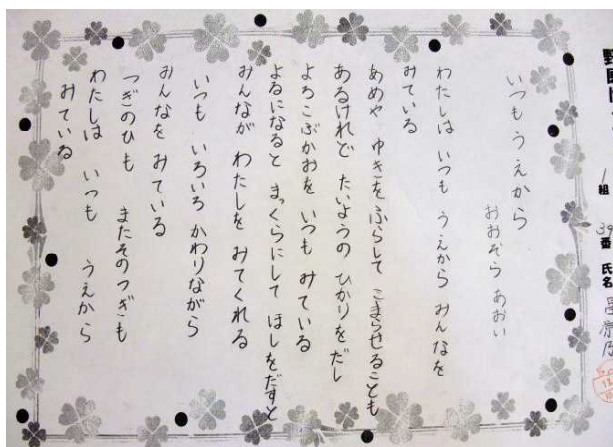 いつもうえから
おおぞら あおい
わたしは いつも うえから みんなを
みている
あめや ゆきをふらして こまらせることも
あるけれど たいようの ひかりをだし
よろこぶかおを いつも みている
よるになると まっくらにして ほしをだすと
みんなが わたしを みてくれる
いつも いろいろ かわりながら
みんなを みている
つぎのひも またそのつぎも
わたしは いつも うえから
みている
1組 39番 氏名